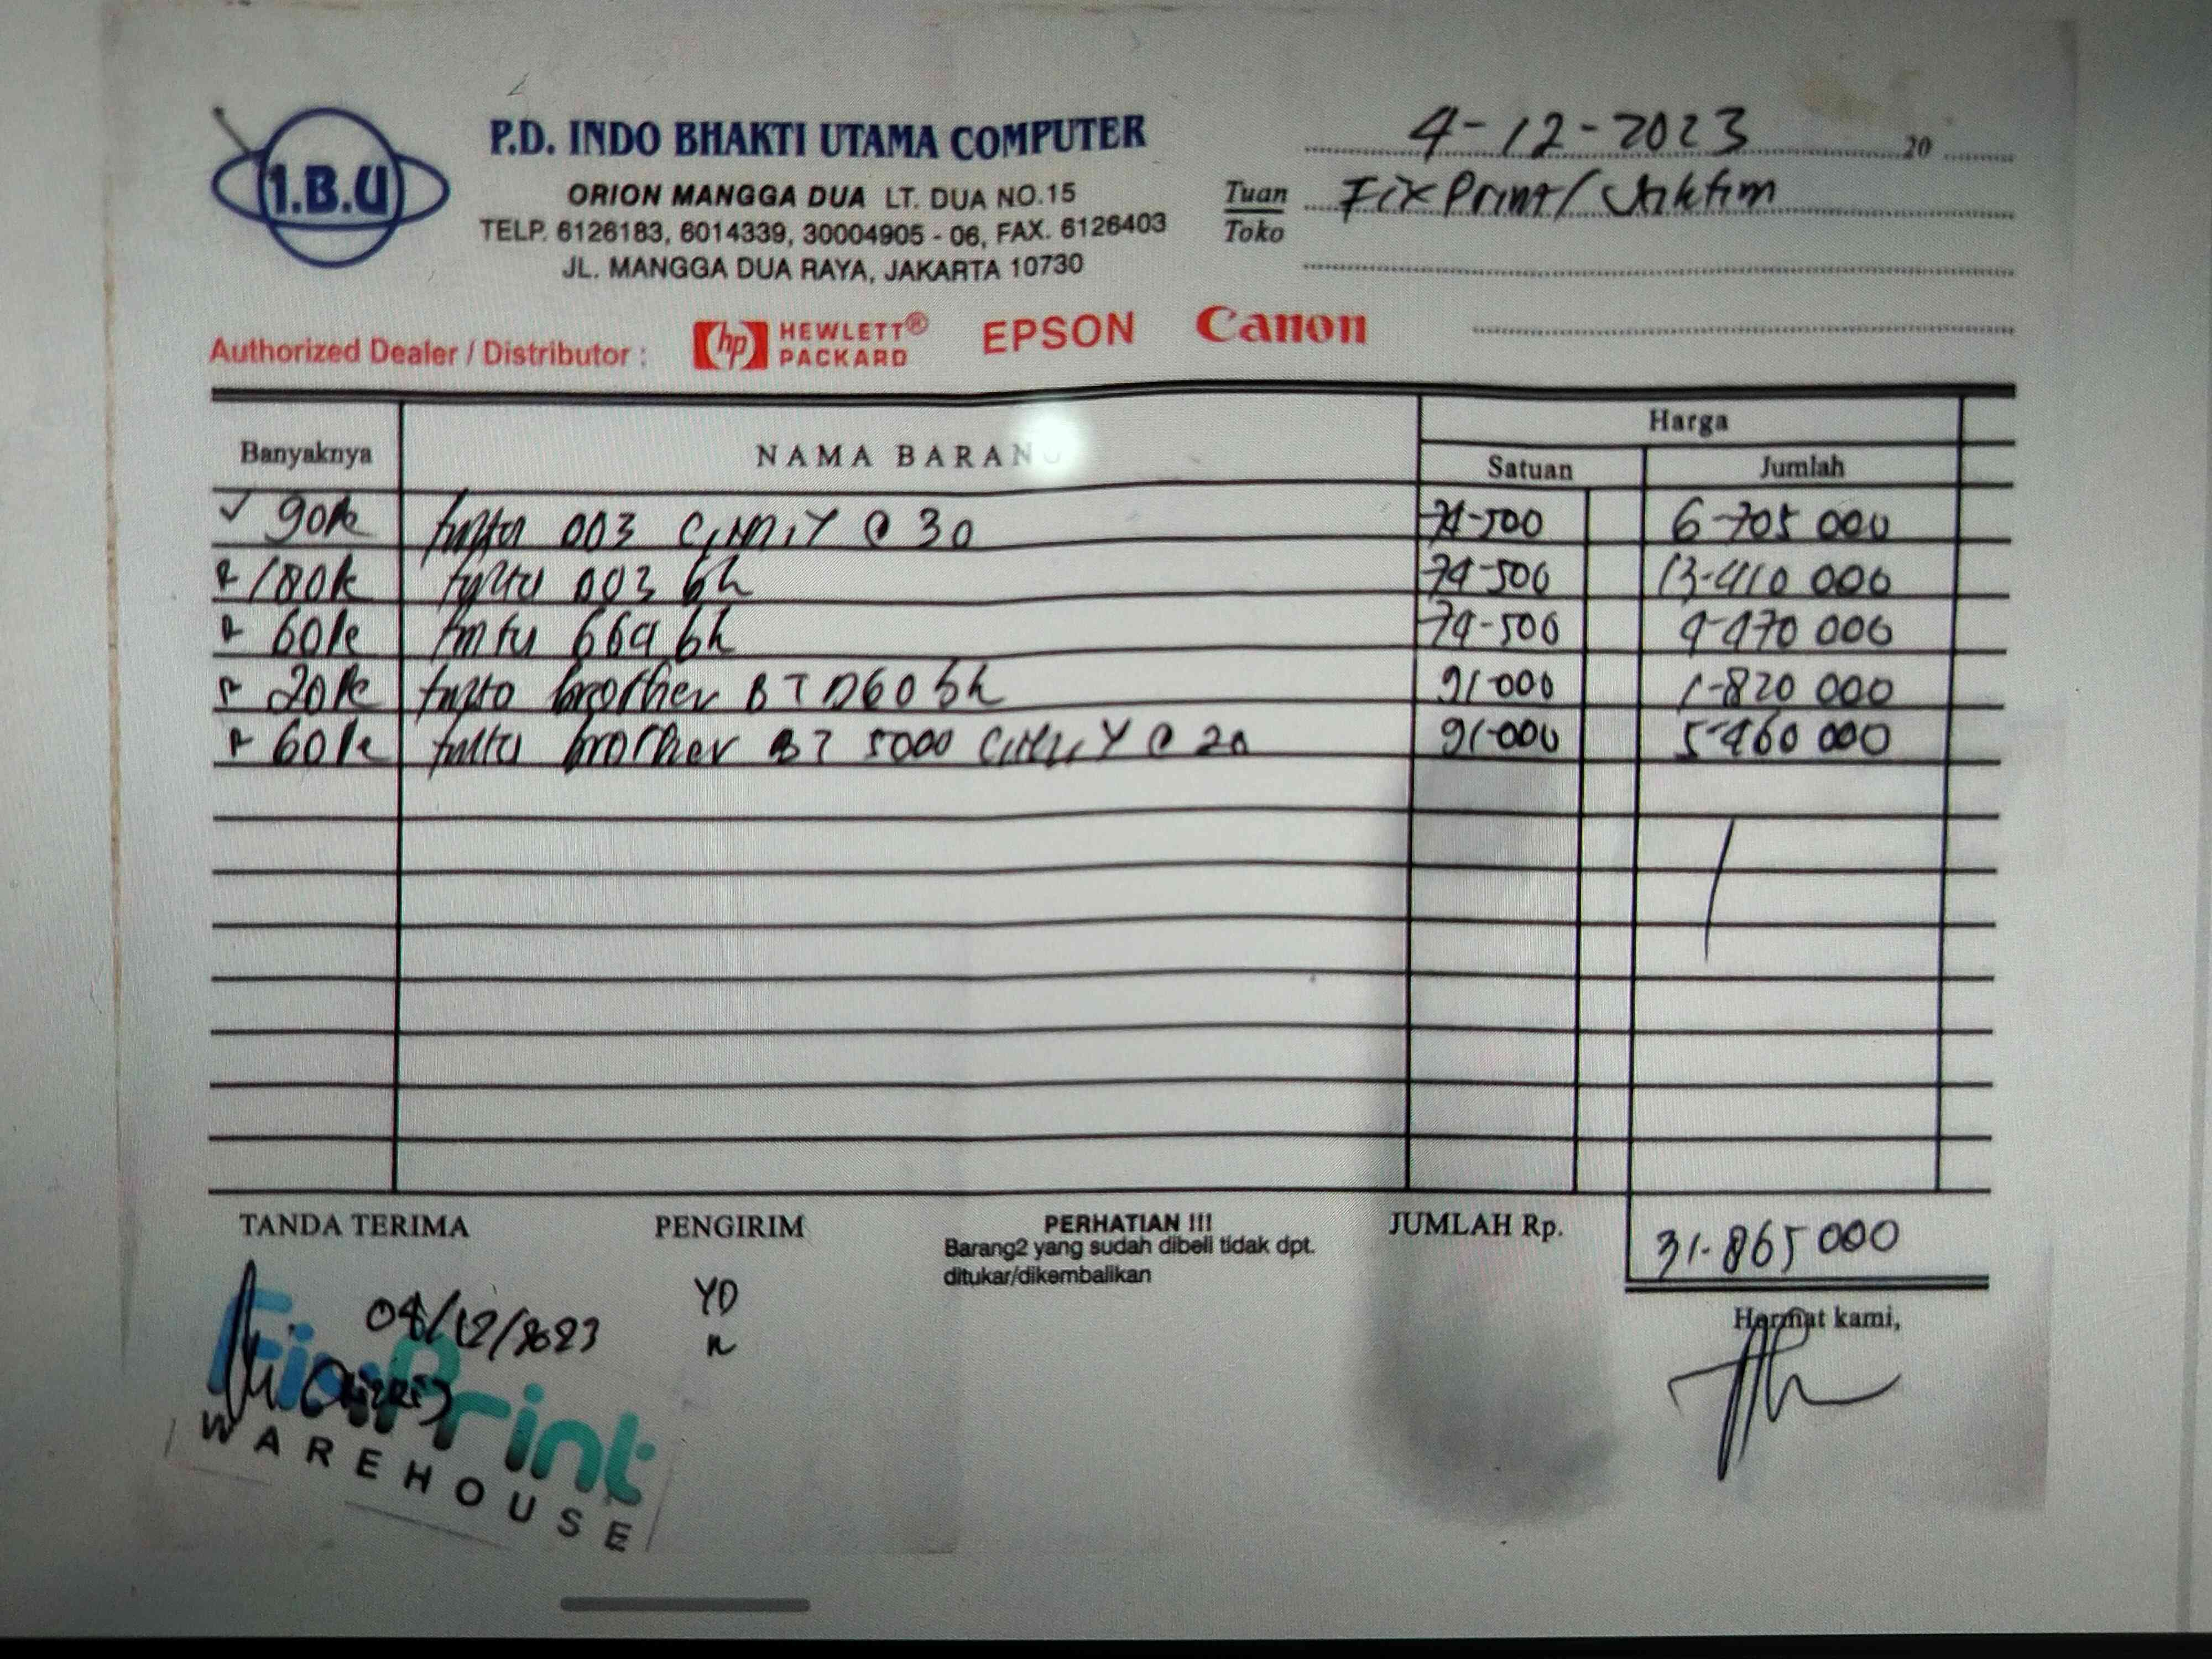 I.B.U
P.D. INDO BHAKTI UTAMA COMPUTER
ORION MANGGA DUA LT. DUA NO.15
TELP. 6126183, 6014339, 30004905 - 06, FAX. 6126403
JL. MANGGA DUA RAYA, JAKARTA 10730
4-12-2023 20
Tuan
Toko
Fixprint / Jaktim
Authorized Dealer / Distributor : hp HEWLETT® PACKARD EPSON Canon
Banyaknya NAMA BARAN Harga
Satuan Jumlah
90 tinta 003 C,M,Y @ 30 74-500 6-705 000
180 tinta 003 bk 74-500 13-410 000
60 tinta 664 bk 74-500 4-470 000
20 tinta brother BT D60 bk 91-000 1-820 000
60 tinta brother BT 5000 C,M,Y @ 20 91-000 5-460 000
TANDA TERIMA PENGIRIM PERHATIAN !!! JUMLAH Rp. 31-865 000
Barang2 yang sudah dibeli tidak dpt.
ditukar/dikembalikan
YD
04/12/2023
Hormat kami,
FixPrint
WAREHOUSE